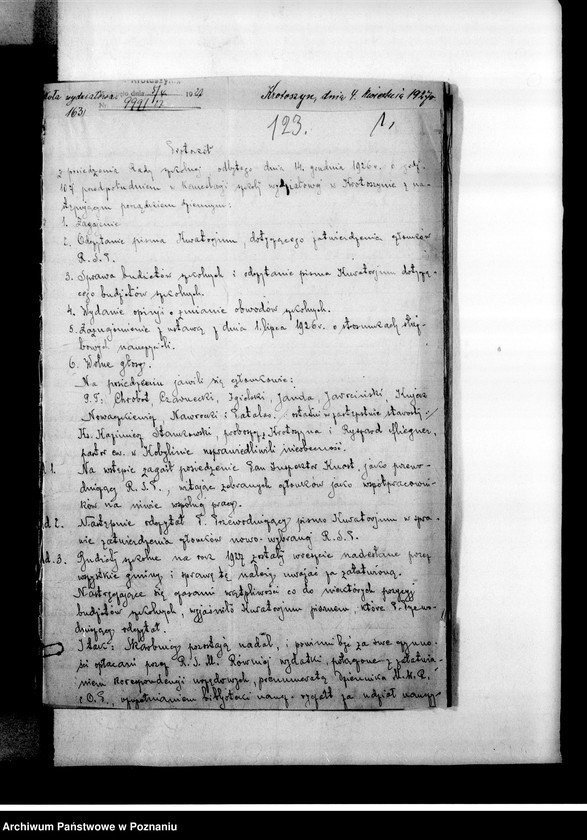 Szkoła wydziałowa
1631
Krotoszyn
dnia 5/4 1928
Nr. 9991
Krotoszyn, dnia 4. kwietnia 1927r.
123.
Protokół
z posiedzenia Rady szkolnej odbytego dnia 14. grudnia 1926 r. o godz.
przedpołudniem w kancelarji szkoły wydziałowej w Krotoszynie z na-
stępującym porządkiem dziennym:
1. Zagajenie.
2. Odczytanie pisma Kuratorjum, dotyczącego zatwierdzenia członków
R. S. P.
3. Sprawa budżetów szkolnych i odczytanie pisma Kuratorjum dotyczą-
cego budżetów szkolnych.
4. Wydanie opinji o zmianie obwodów szkolnych.
5. Zaznajomienie z ustawą z dnia 1. lipca 1926 r. o stosunkach służ-
bowych nauczycieli.
6. Wolne głosy.
Na posiedzeniu jawili się członkowie:
P.T: Chrobot, Czarnecki, Igielski, Janda, Jarosiński, Kujosz
Nowaczkiewicz, Nawrocki i Patalas. ostatni w zastępstwie starosty
Ks. Kaźmierz Stankowski, proboszcz z Krotoszyna i Ryszard Fliegner,
pastor ew. w Kobylinie usprawiedliwili nieobecność.
Ad 1. Na wstępie zagaił posiedzenie Pan Inspektor Knast, jako przewo-
dniczący R. S. P., witając zebranych członków jako współpracowni-
ków na niwie wspólnej pracy.
Ad 2. Następnie odczytał P. Przewodniczący pismo Kuratorjum w spra-
wie zatwierdzenia członków nowo-wybranej R. S. P.
Ad. 3. Budżety szkolne na rok 1927 zostały wreszcie nadesłane przez
wszystkie gminy i sprawę tę należy uważać za załatwioną.
Nastręczające się czasami wątpliwości co do niektórych pozycyj
budżetów szkolnych, wyjaśniło Kuratorjum pismem, które P. Przewo-
dniczący odczytał.
I tak: Skarbnicy pozostają nadal, i powinni być za swe czynno-
ści opłacani przez R. S. M. Również wydatki, połączone z załatwia-
niem korespondencji urzędowych, prenumeratą Dziennika M. W. R.
i O. P., uzupełnianiem bibljoteki naucz. zwrot za udział nauczy-
Archiwum Państwowe w Poznaniu